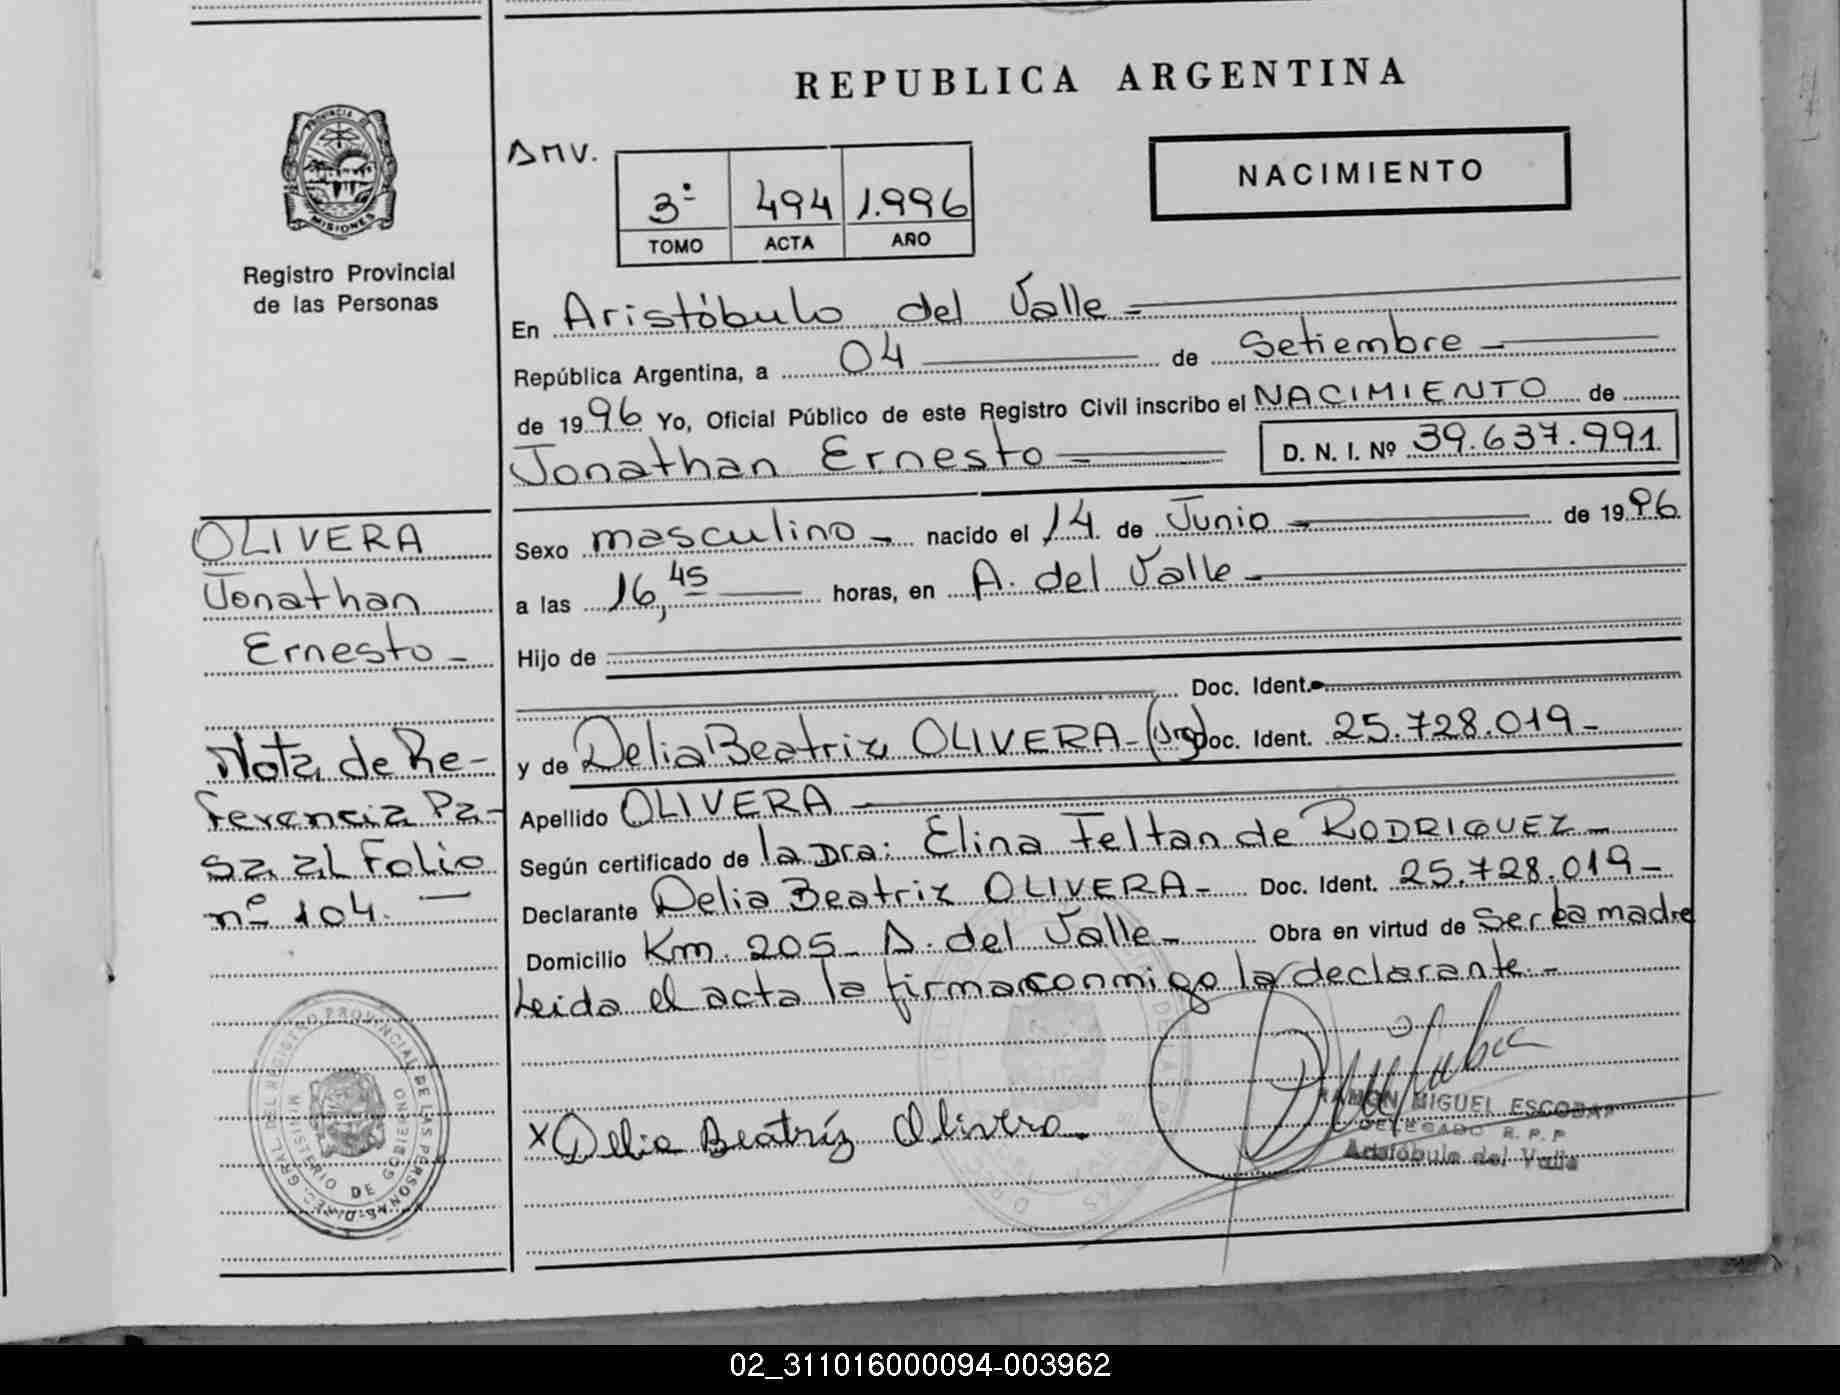 REPUBLICA ARGENTINA
PROVINCIA DE
MISIONES
Registro Provincial
de las Personas
NACIMIENTO
3º 494 1.996
TOMO ACTA AÑO
En Aristóbulo del Valle
República Argentina, a 04 de Setiembre
de 1996 Yo, Oficial Público de este Registro Civil inscribo el NACIMIENTO de
Jonathan Ernesto D. N. I. Nº 39.637.991
Sexo masculino nacido el 14 de Junio de 1996
a las 16,45 horas, en A. del Valle
Hijo de
Doc. Ident.
y de Delia Beatriz OLIVERA - (Arg) Doc. Ident. 25.728.019-
Apellido OLIVERA
Según certificado de la Dra: Elina Feltan de RODRIGUEZ
Declarante Delia Beatriz OLIVERA- Doc. Ident. 25.728.019-
Domicilio Km. 205- A. del Valle- Obra en virtud de Ser La madre
Leida el acta la firma conmigo la declarante.-
x Delia Beatríz Olivera
RAMON MIGUEL ESCOBAR
DELEGADO R. P. P
Aristóbulo del Valle
OLIVERA
Jonathan
Ernesto-
Nota de Re-
ferencia Pa-
sa al Folio
nº 104.-
MINISTERIO DE GOBIERNO
DIREC. GRAL. DEL REGISTRO PROVINCIAL DE LAS PERSONAS
02_311016000094-003962